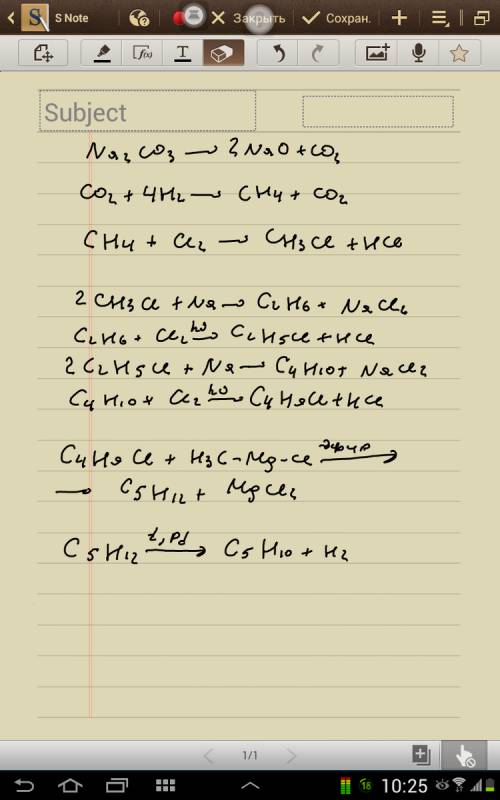 S Note
Закрыть
Сохран.
f(x)
T
Subject
Na2CO3 → 2NaO + CO2
CO2 + 4H2 → CH4 + CO2
CH4 + Cl2 → CH3Cl + HCl
2CH3Cl + Na → C2H6 + NaCl2
C2H6 + Cl2 hν→ C2H5Cl + HCl
2C2H5Cl + Na → C4H10 + NaCl2
C4H10 + Cl2 hν→ C4H9Cl + HCl
C4H9Cl + H3C-Mg-Cl эфир→
→ C5H12 + MgCl2
C5H12 t, Pd→ C5H10 + H2
1/1
18
10:25